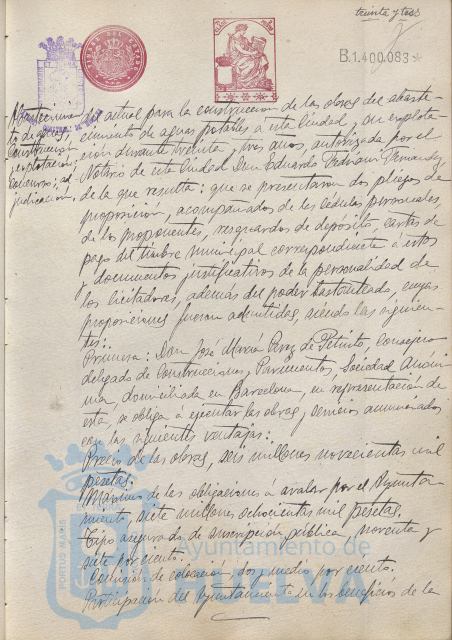 treinta y tres
B.1.400.083
de actual para la construcción de las obras del abaste-
cimiento de aguas potables a esta Ciudad, su explota-
ción durante treinta y tres años, autorizada por el
Notario de esta Ciudad Don Eduardo Fedriani Fernandez
de la que resulta: que se presentaron dos pliegos de
proposición, acompañados de las cédulas personales
de los proponentes, resguardos de depósito, cartas de
pago del timbre municipal correspondiente a estos
y documentos justificativos de la personalidad de
los licitadores, además del poder bastanteado, cuyas
proposiciones fueron admitidas, siendo las siguien-
tes:
Primera: Don José María Perez de Petinto, Consejero
delegado de Construcciones y Pavimentos, Sociedad Anóni-
ma, domiciliada en Barcelona, en representación de
esta, se obliga a ejecutar las obras y servicios anunciados
con las siguientes ventajas:
Precio de las obras, seis millones novecientas mil
pesetas.
Máximo de las obligaciones á avalar por el Ayunta-
miento, siete millones ochocientas mil pesetas.
Tipo asegurado de suscripción pública, noventa y
siete por ciento.
Comisión de colocación, dos y medio por ciento.
Participación del Ayuntamiento en los beneficios de la
de aguas,
Construcción
y explotación,
Concurso, ad-
judicación.
Ayuntamiento de
HUELVA
PORTUS MARIS